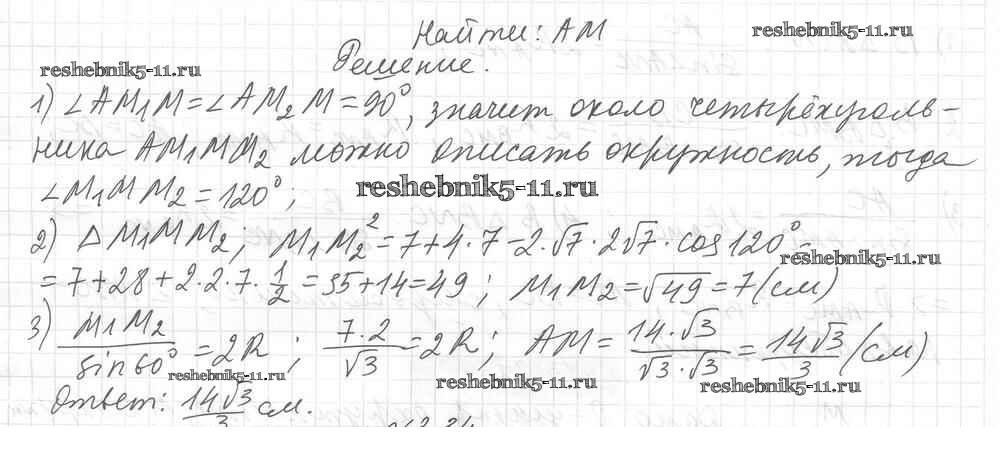 Найти: AM
reshebnik5-11.ru
reshebnik5-11.ru
Решение.
1) ∠AM₁M = ∠AM₂M = 90°, значит около четырёхуголь-
ника AM₁MM₂ можно описать окружность, тогда
∠M₁MM₂ = 120°;
reshebnik5-11.ru
2) △M₁MM₂; M₁M₂² = 7 + 4·7 − 2·√7·2√7·cos120° =
reshebnik5-11.ru
= 7 + 28 + 2·2·7·1/2 = 35 + 14 = 49; M₁M₂ = √49 = 7 (см)
3) M₁M₂/sin60° = 2R; 7·2/√3 = 2R; AM = 14·√3/√3·√3 = 14√3/3 (см)
reshebnik5-11.ru
reshebnik5-11.ru
reshebnik5-11.ru
Ответ: 14√3/3 см.